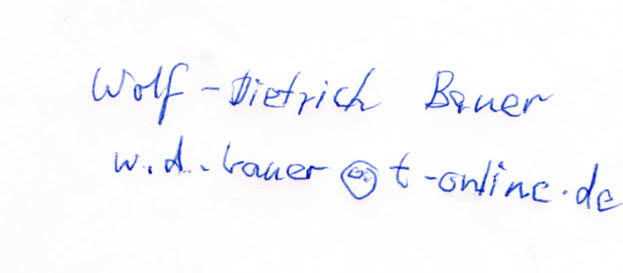 Wolf-Dietrich Bauer
w.d.bauer@t-online.de